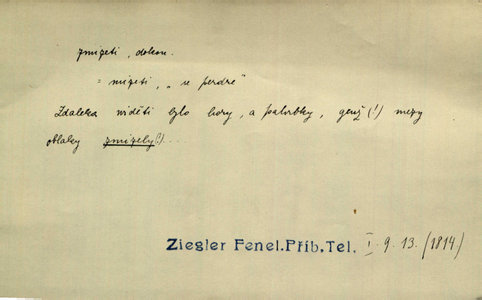 zmizeti, dokon.
= mizeti, „ se perdre"
Zdaleka viděti bylo hory, a pahrbky, genž (!) mezy
oblaky zmizely (!)...
Ziegler Fenel.Příb.Tel. I. 9. 13. (1814)